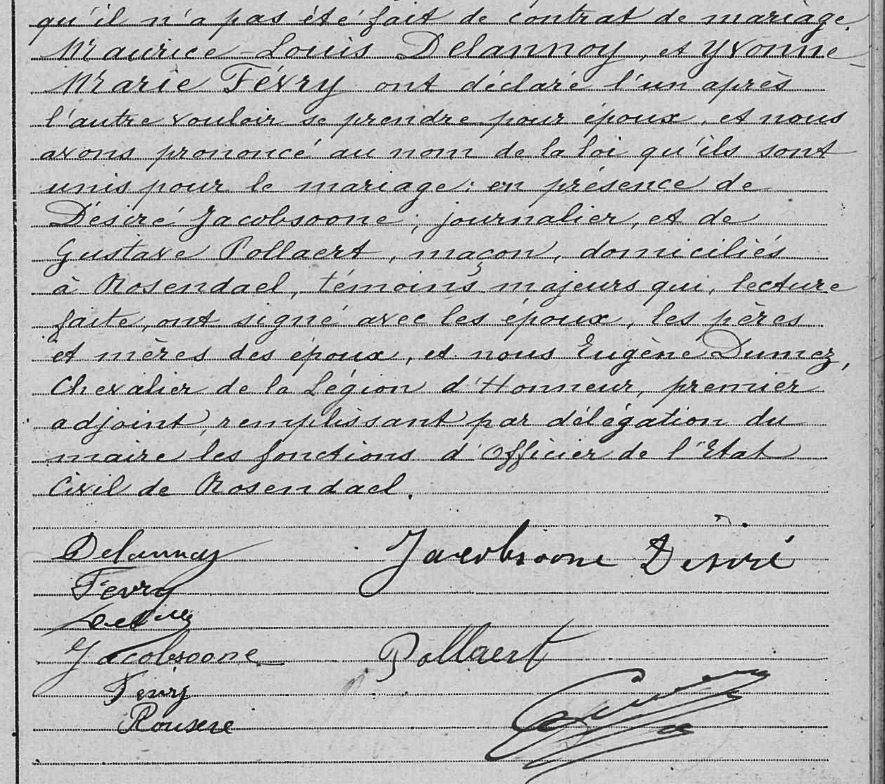 qu'il n'a pas été fait de contrat de mariage.
Maurice-Louis Delannoy, et Yvonne-
Marie Févry ont déclaré l'un après
l'autre vouloir se prendre pour époux, et nous
avons prononcé au nom de la loi qu'ils sont
unis pour le mariage; en présence de
Désiré Jacobsoone, journalier, et de
Gustave Pollaert, maçon, domiciliés
à Rosendael, témoins majeurs qui, lecture
faite, ont signé avec les époux, les pères
et mères des époux, et nous Eugène Dumez,
Chevalier de la Légion d'Honneur, premier
adjoint, remplissant par délégation du
maire les fonctions d'Officier de l'Etat
Civil de Rosendael.
Delannoy
Jacobsoone Désiré
Fevry
Jacobsoone
Pollaert
Fevry
Rousere